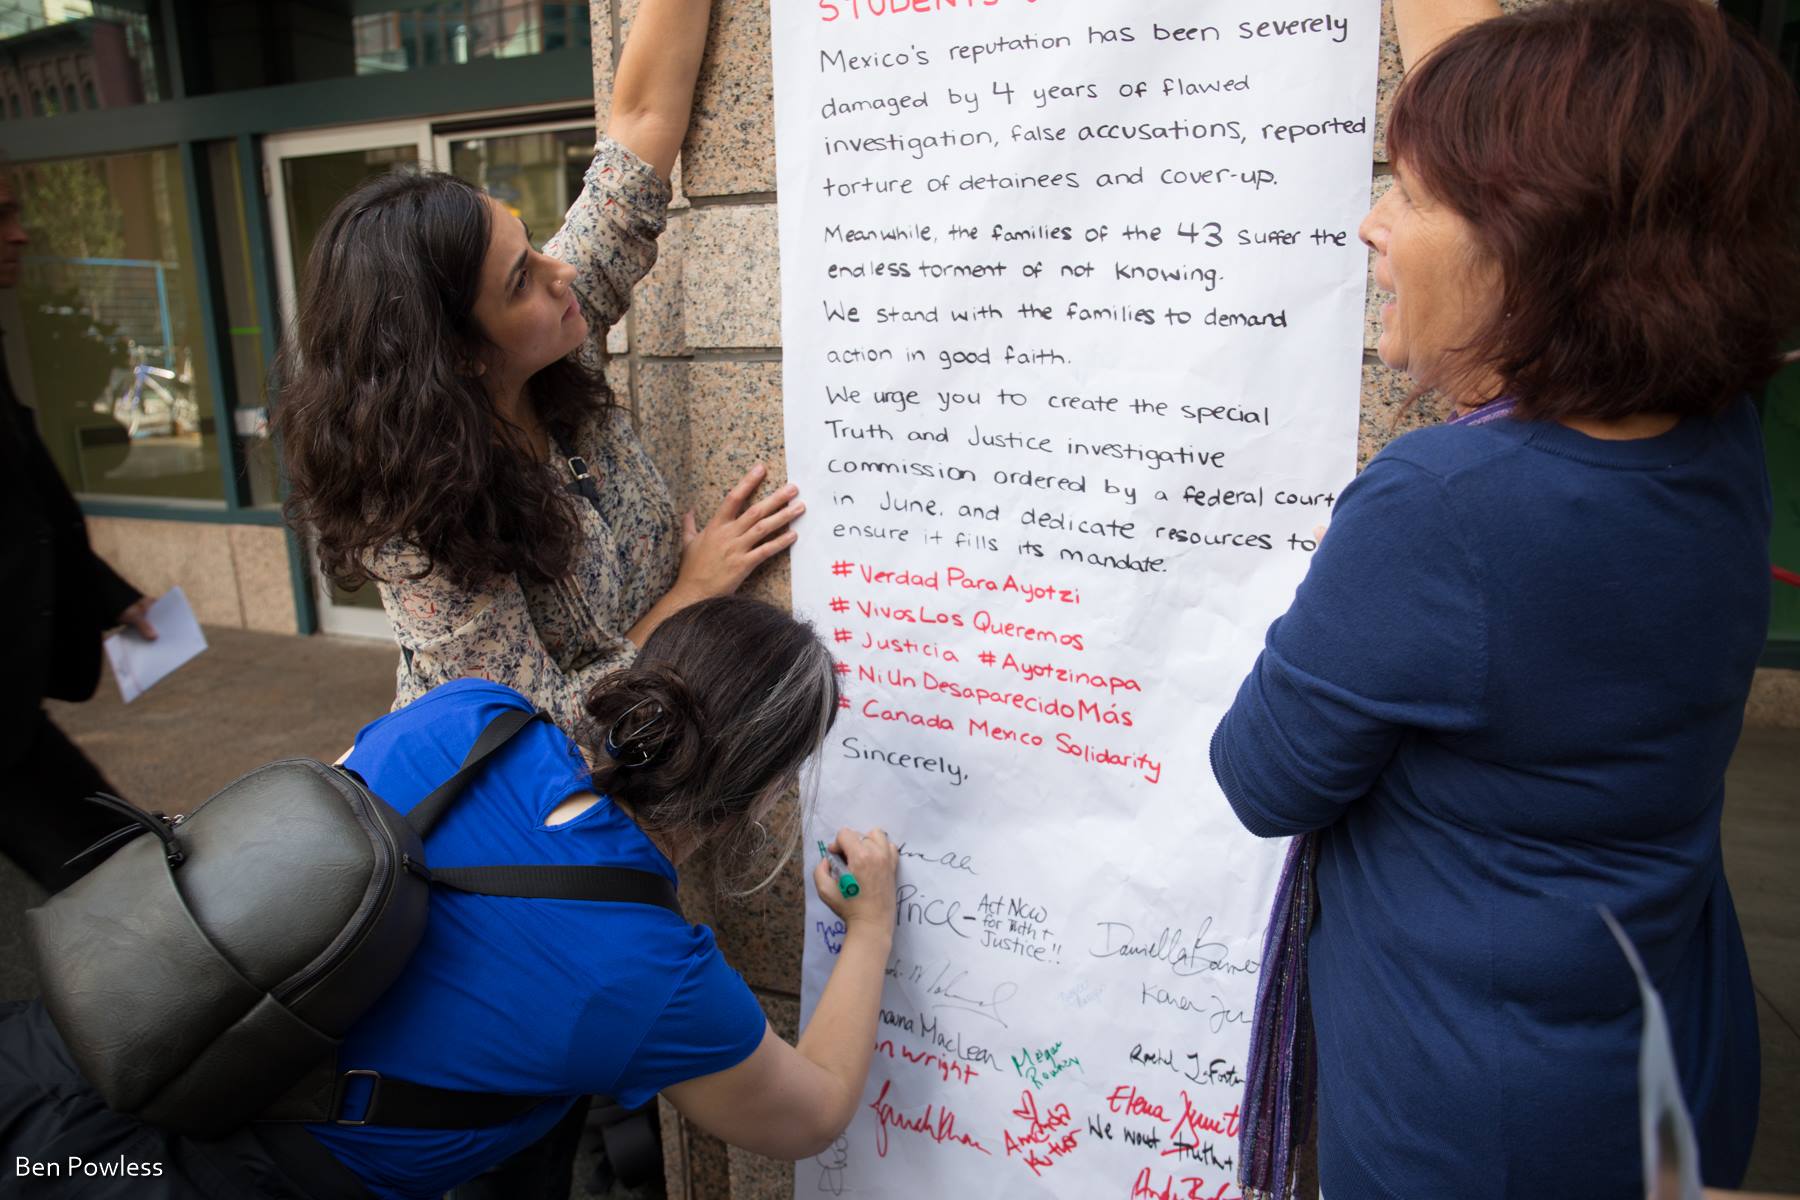 STUDENTS
Mexico's reputation has been severely
damaged by 4 years of flawed
investigation, false accusations, reported
torture of detainees and cover-up.
Meanwhile, the families of the 43 suffer the
endless torment of not knowing.
We stand with the families to demand
action in good faith.
We urge you to create the special
Truth and Justice investigative
commission ordered by a federal court
in June, and dedicate resources to
ensure it fills its mandate.
#VerdadParaAyotzi
#VivosLosQueremos
#Justicia #Ayotzinapa
#NiUnDesaparecidoMás
#Canada Mexico Solidarity
Sincerely,
Price - Act Now
for Truth +
Justice!!
Daniella
Karen
MacLean
wright
Megan
Rachel J. Foster
Elena
We want Truth +
Khan
Ben Powless